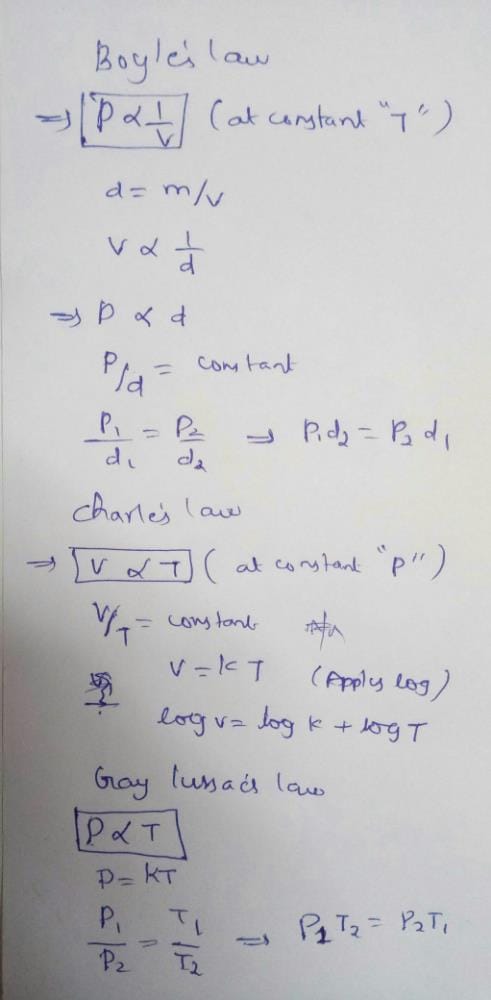 Boyle's law
⇒ P ∝ 1/V (at constant "T")
d = m/v
V ∝ 1/d
⇒ P ∝ d
P/d = constant
P₁/d₁ = P₂/d₂ ⇒ P₁d₂ = P₂d₁
Charle's law
⇒ V ∝ T (at constant "P")
V/T = constant
V = kT (Apply log)
log v = log k + log T
Gray lussac's law
P ∝ T
P = KT
P₁/P₂ = T₁/T₂ ⇒ P₁T₂ = P₂T₁